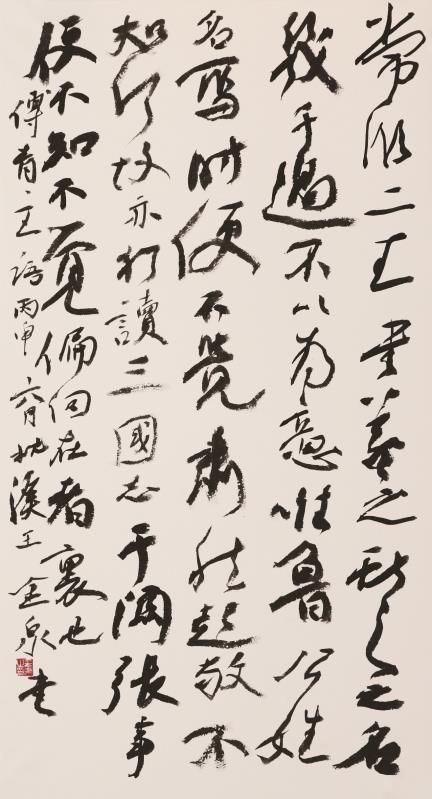 常臨二王書羲之獻之之名
幾千過不以為意唯魯公姓
名寫時便不覺肅然起敬不
知何故亦猶讀三國志于關張事
便不知不覺偏向在者裏也
傅青主語丙申六月溪王金泉書